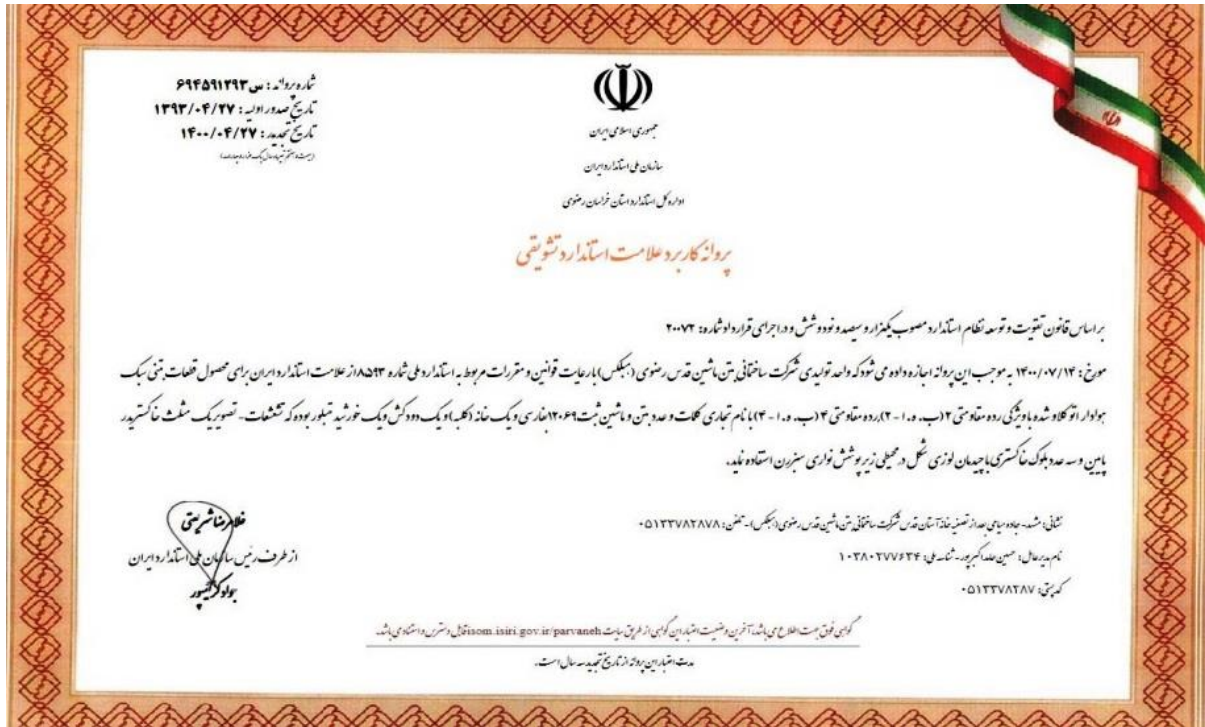 شماره پروانه : س ۶۹۴۵۹۱۲۹۳
تاریخ صدور اولیه : ۱۳۹۳/۰۴/۲۷
تاریخ تمدید : ۱۴۰۰/۰۴/۲۷
جمهوری اسلامی ایران
سازمان ملی استاندارد ایران
اداره کل استاندارد استان خراسان رضوی
پروانه کاربرد علامت استاندارد تشویقی
بر اساس قانون تقویت و توسعه نظام استاندارد مصوب یکهزار و سیصد و نود و شش و در اجرای قرارداد شماره: ۲۰۰۷۲
مورخ : ۱۴۰۰/۰۷/۱۴ به موجب این پروانه اجازه داده می شود که واحد تولیدی شرکت ساختمانی بتن ماشین قدس رضوی (هبلکس) با رعایت قوانین و مقررات مربوط به استاندارد ملی شماره ۸۵۹۳ از علامت استاندارد ایران برای محصول قطعات بتنی سبک
هوادار اتوکلاو شده با ویژگی رده مقاومتی ۲ (ب. ه. ا - ۲)، رده مقاومتی ۴ (ب. ه. ا - ۴) با نام تجاری کلمات و عدد بتن و ماشین ثبت ۱۲۰۶۹ بفارسی و یک خانه (کلبه) و یک دودکش و یک خورشید متبلور بوده که تشعشعات - تصویر یک مثلث خاکستری در
پایین و سه عدد بلوک خاکستری با چیدمان لوزی شکل در محیطی زیر پوشش نواری سبز رن استفاده نماید.
نشانی : مشهد- جاده میامی بعد از تصفیه خانه آستان قدس شرکت ساختمانی بتن ماشین قدس رضوی (هبلکس) - تلفن : ۰۵۱۳۳۷۸۲۸۷۸
نام مدیرعامل : حسین اکبرپور - شناسه ملی : ۱۰۳۸۰۲۷۷۶۳۴
کد پستی : ۰۵۱۳۳۷۸۲۸۷
غلامرضا شریعتی
از طرف رئیس سازمان ملی استاندارد ایران
گواهی فوق جهت اطلاع می باشد، آخرین وضعیت اعتبار این گواهی از طریق سایت isom.isiri.gov.ir/parvaneh قابل دسترس و استناد می باشد.
مدت اعتبار این پروانه از تاریخ تمدید سه سال است.